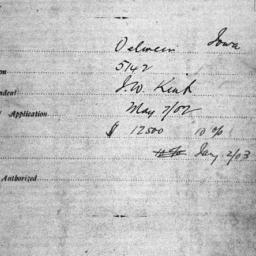 Oelwein Iowa
on 5142
ndent J. W. Kint
Application May 7/02
$ 12500 10%
10% Jany 2/03
Authorized